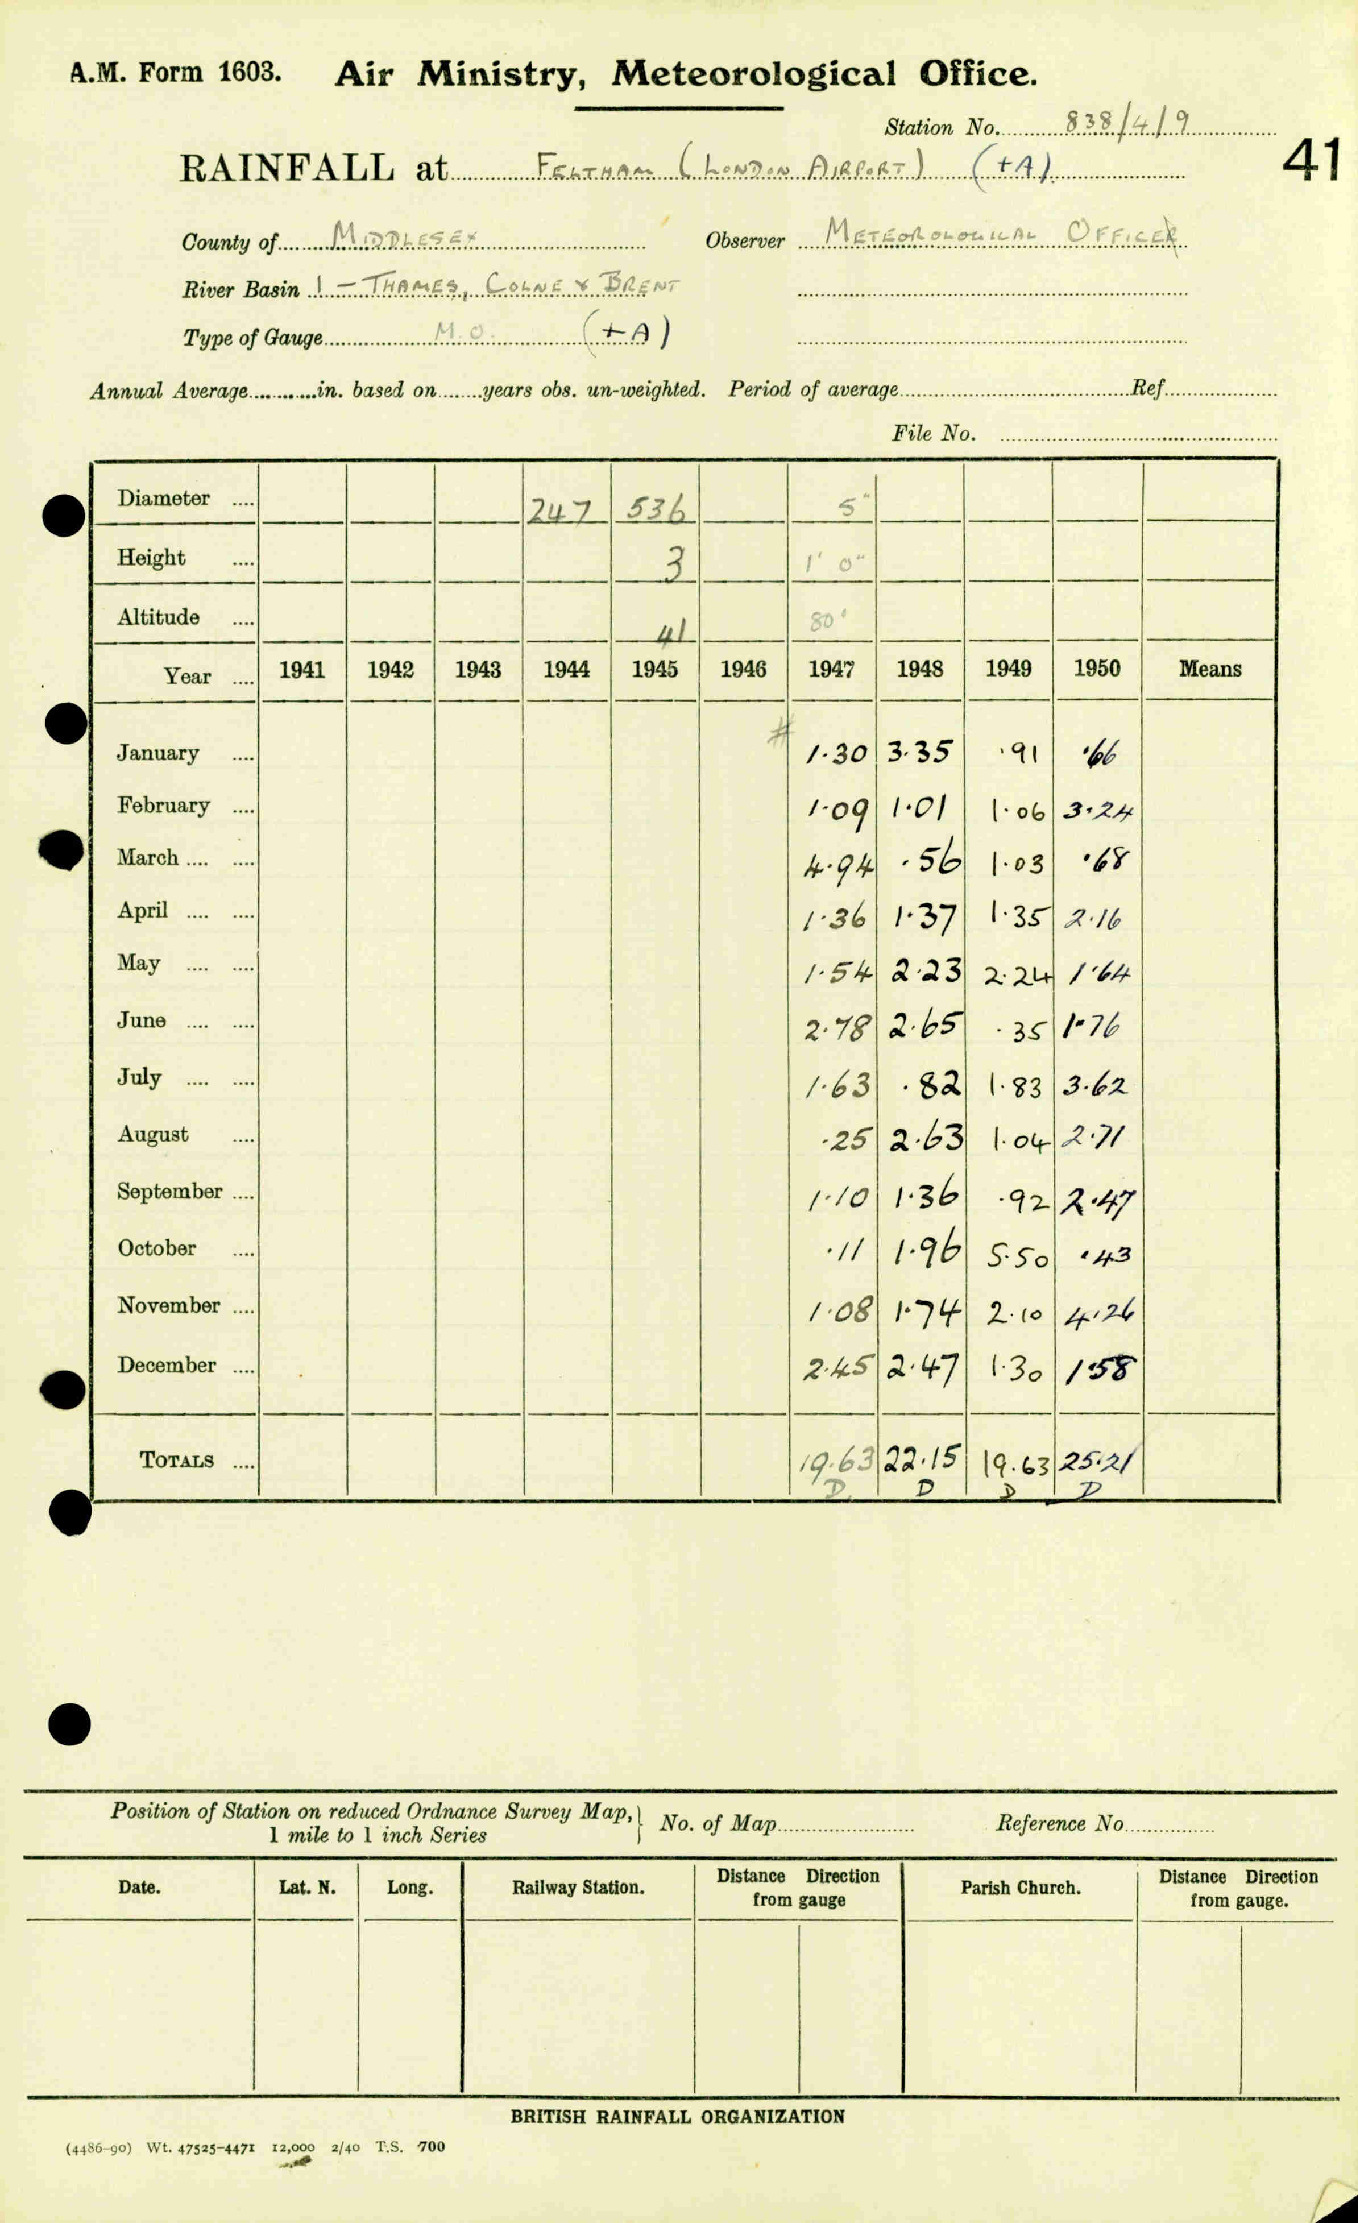 A.M. Form 1603. Air Ministry, Meteorological Office.
Station No. 838/4/9
41
RAINFALL at FELTHAM (LONDON AIRPORT) (+A)
County of MIDDLESEX Observer METEOROLOGICAL OFFICER
River Basin 1 – THAMES, COLNE & BRENT
Type of Gauge M.O. (+A)
Annual Average............in. based on........years obs. un-weighted. Period of average........Ref........
File No.
Diameter .... 247 536 5"
Height .... 3 1' 0"
Altitude .... 41 80'
Year .... 1941 1942 1943 1944 1945 1946 1947 1948 1949 1950 Means
#
January .... 1.30 3.35 .91 .66
February .... 1.09 1.01 1.06 3.24
March .... .... 4.94 .56 1.03 .68
April .... .... 1.36 1.37 1.35 2.16
May .... .... 1.54 2.23 2.24 1.64
June .... .... 2.78 2.65 .35 1.76
July .... .... 1.63 .82 1.83 3.62
August .... .25 2.63 1.04 2.71
September .... 1.10 1.36 .92 2.47
October .... .11 1.96 5.50 .43
November .... 1.08 1.74 2.10 4.26
December .... 2.45 2.47 1.30 1.58
TOTALS .... 19.63 22.15 19.63 25.21
D. D D D
Position of Station on reduced Ordnance Survey Map,} No. of Map........ Reference No........
1 mile to 1 inch Series
Date. Lat. N. Long. Railway Station. Distance Direction from gauge Parish Church. Distance Direction from gauge.
BRITISH RAINFALL ORGANIZATION
(4486-90) Wt. 47525-4471 12,000 2/40 T.S. 700